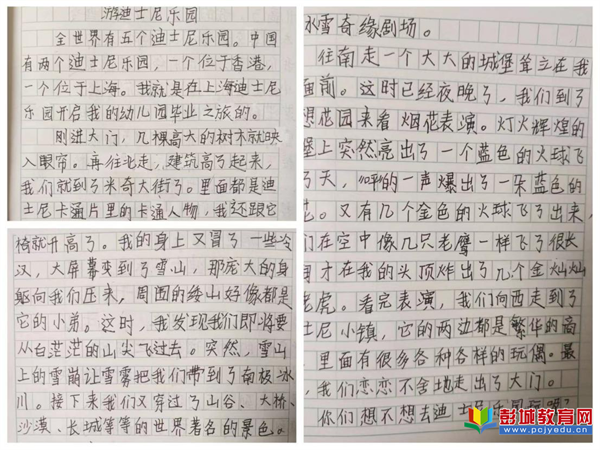 游迪士尼乐园
全世界有五个迪士尼乐园。中国
有两个迪士尼乐园，一个位于香港，
一个位于上海。我就是在上海迪士尼
乐园开启我的幼儿园毕业之旅的。
刚进大门，几棵高大的树木就映
入眼帘。再往北走，建筑高了起来，
我们就到了米奇大街了。里面都是迪
士尼卡通片里的卡通人物，我还跟它
椅就升高了。我的身上又冒了一些冷
汉，大屏幕变到了雪山，那庞大的身
躯向我们压来，周围的矮山好像都是
它的小弟。这时，我发现我们即将要
从白茫茫的山尖飞过去。突然，雪山
上的雪崩让雪雾把我们带到了南极冰
川。接下来我们又穿过了山谷、大桥、
沙漠、长城等等的世界著名的景色。
冰雪奇缘剧场。
往南走一个大大的城堡耸立在我
面前。这时已经夜晚了，我们到了
想花园来看烟花表演。灯火辉煌的
堡上突然亮出了一个蓝色的火球飞
了天，“呯”的一声爆出了一朵蓝色的
花。又有几个金色的火球飞了出来，
们在空中像几只老鹰一样飞了很长
间才在我的头顶炸出了几个金灿灿
老虎。看完表演，我们向西走到了
士尼小镇，它的两边都是繁华的商
里面有很多各种各样的玩偶。最
，我们恋恋不舍地走出了大门。
你们想不想去迪士尼乐园玩呢？
彭城教育网
www.pcjyedu.cn